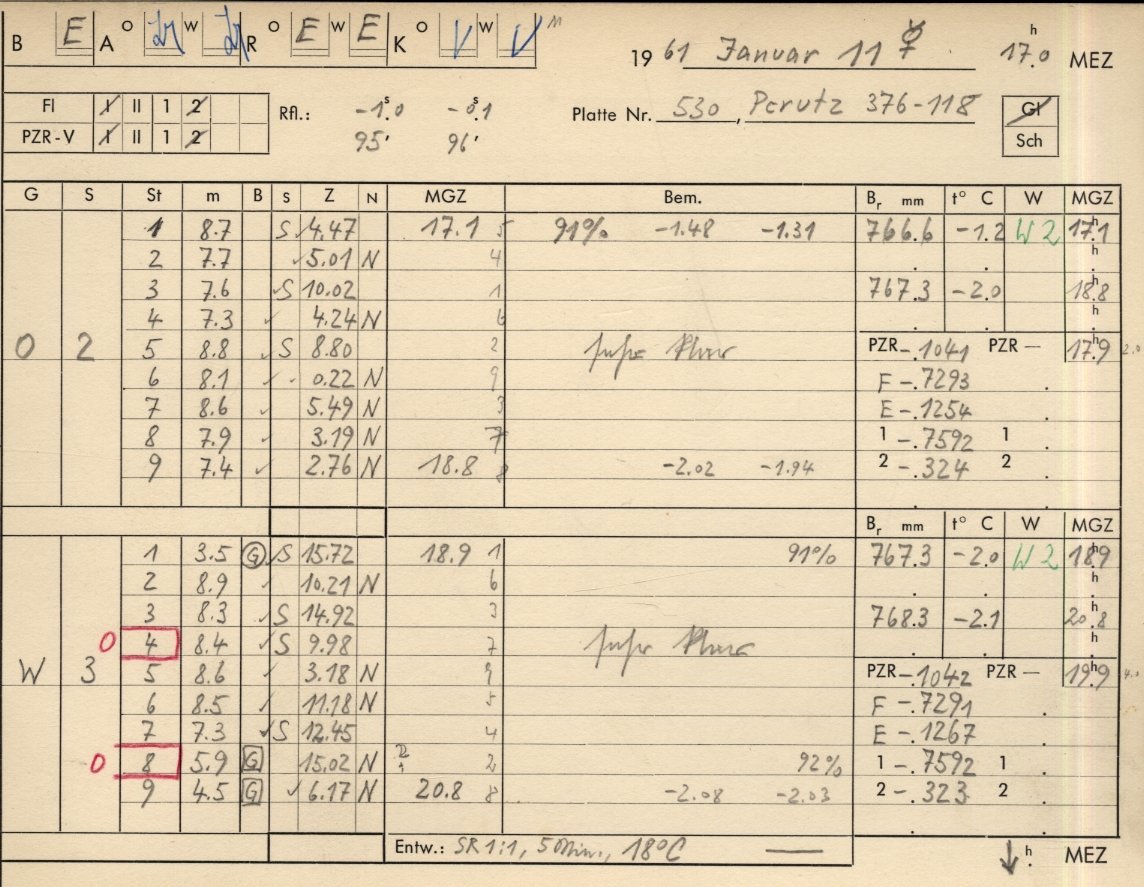 B E A O W R O E W E K O V W V
1961 Januar 11 ☿ 17.0 h MEZ
FI I II 1 2 Rfl.: -1.0 s -0.1 s Platte Nr. 530, Perutz 376-118 Gl
PZR-V I II 1 2 95' 96' Sch
G S St m B S Z N MGZ Bem. Br mm t° C W MGZ
1 8.7 S 4.47 17.1 5 91% -1.48 -1.31 766.6 -1.2 W 2 17.1 h
2 7.7 5.01 N 4 h
3 7.6 S 10.02 1 767.3 -2.0 18.8 h
4 7.3 4.24 N 6 h
O 2 5 8.8 S 8.80 2 PZR -.1041 PZR — 17.9 h 2.0
6 8.1 0.22 N 9 F -.7293
7 8.6 5.49 N 3 E -.1254
8 7.9 3.19 N 7 1 -.7592 1
9 7.4 2.76 N 18.8 8 -2.02 -1.94 2 -.324 2
Br mm t° C W MGZ
1 3.5 G S 15.72 18.9 1 91% 767.3 -2.0 W 2 18.9 h
2 8.9 10.21 N 6 h
3 8.3 S 14.92 3 768.3 -2.1 20.8 h
O 4 8.4 S 9.98 7 h
W 3 5 8.6 3.18 N 9 PZR -.1042 PZR — 19.9 h 4.0
6 8.5 11.18 N 5 F -.7291
7 7.3 S 12.45 4 E -.1267
O 8 5.9 G 15.02 N 2 92% 1 -.7592 1
9 4.5 G 6.17 N 20.8 8 -2.08 -2.03 2 -.323 2
Entw.: SR 1:1, 5 Min., 18°C — h MEZ